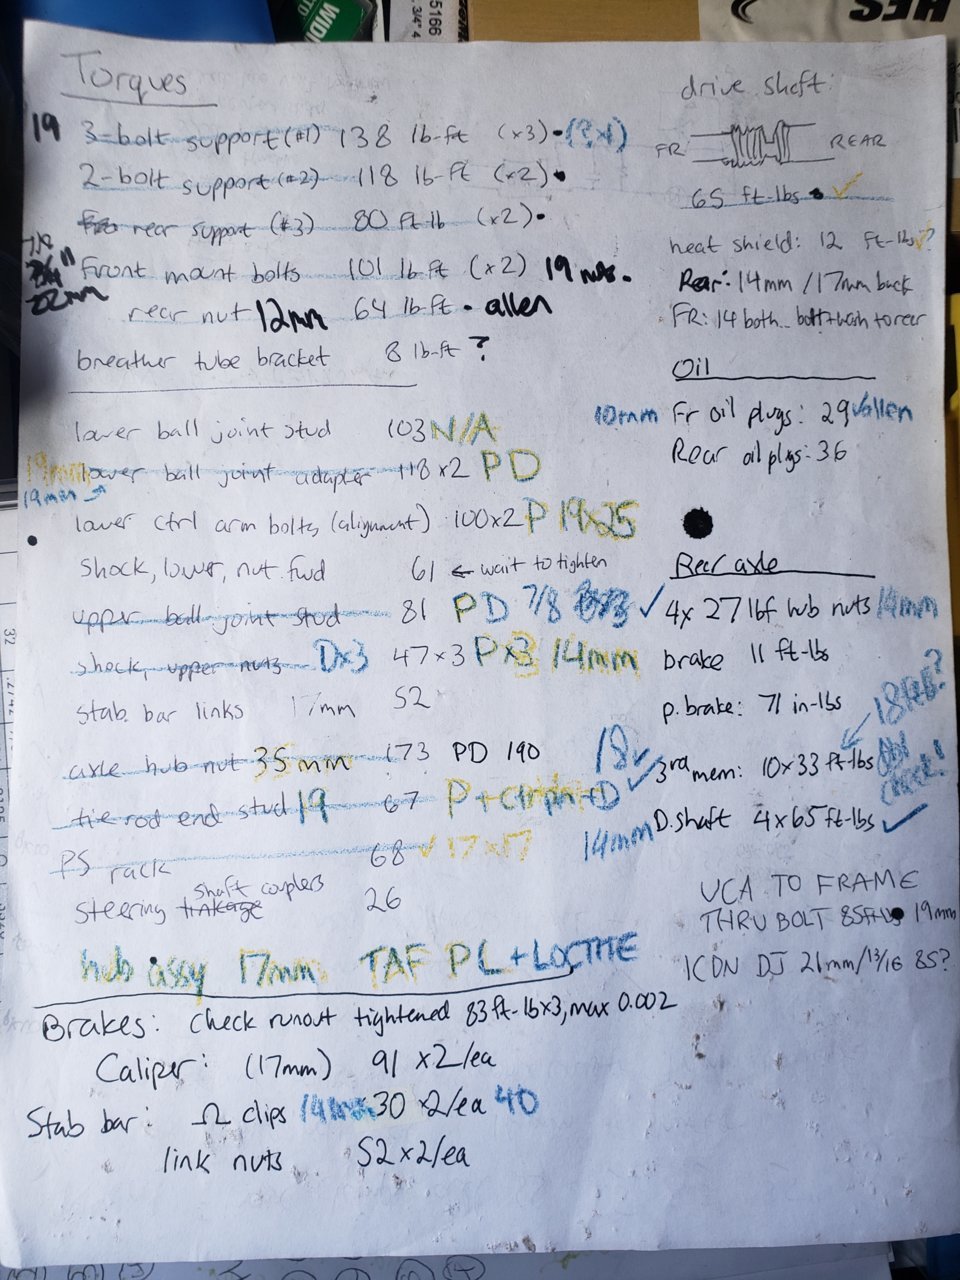 Torques
19 3-bolt support (#1) 138 lb-ft (x3) • (?x1)
2-bolt support (#2) 118 lb-ft (x2) •
rear support (#3) 80 ft-lb (x2) •
22mm front mount bolts 101 lb-ft (x2) 19 •
rear nut 12mm 64 lb-ft • allen
breather tube bracket 8 lb-ft ?
lower ball joint stud 103 N/A
19mm lower ball joint adapter 118 x2 PD
19mm
lower ctrl arm bolts (alignment) 100x2 P 19x25
shock, lower, nut fwd 61 ← wait to tighten
upper ball joint stud 81 PD 7/8
shock, upper nuts Dx3 47x3 Px3 14mm
stab. bar links 17mm 52
axle hub nut 35mm 173 PD 190
tie rod end stud 19 67 P + +D
PS rack 68 ✓ 17x17
shaft couplers
steering linkage 26
hub assy 17mm TAF PL + LOCTITE
Brakes: check runout tightened 83 ft-lb x3, max 0.002
Caliper: (17mm) 91 x2/ea
Stab bar: Ω clips 14mm 30 x2/ea 40
link nuts 52 x2/ea
drive shaft:
FR REAR
65 ft-lbs • ✓
heat shield: 12 ft-lbs ✓?
Rear: 14mm / 17mm back
FR: 14 both.. bolt+wash to rear
Oil
10mm Fr oil plugs: 29 ✓ allen
Rear oil plgs: 36
Rear axle
✓ 4x 27 lbf hub nuts 14mm
brake 11 ft-lbs
p. brake: 71 in-lbs
18 ✓ 3rd mem: 10x33 ft-lbs
14mm D. shaft 4x65 ft-lbs ✓
UCA TO FRAME
THRU BOLT 85 ft-lb 19mm
ICON DJ 21mm/13/16 85?
5166
3/4" 4